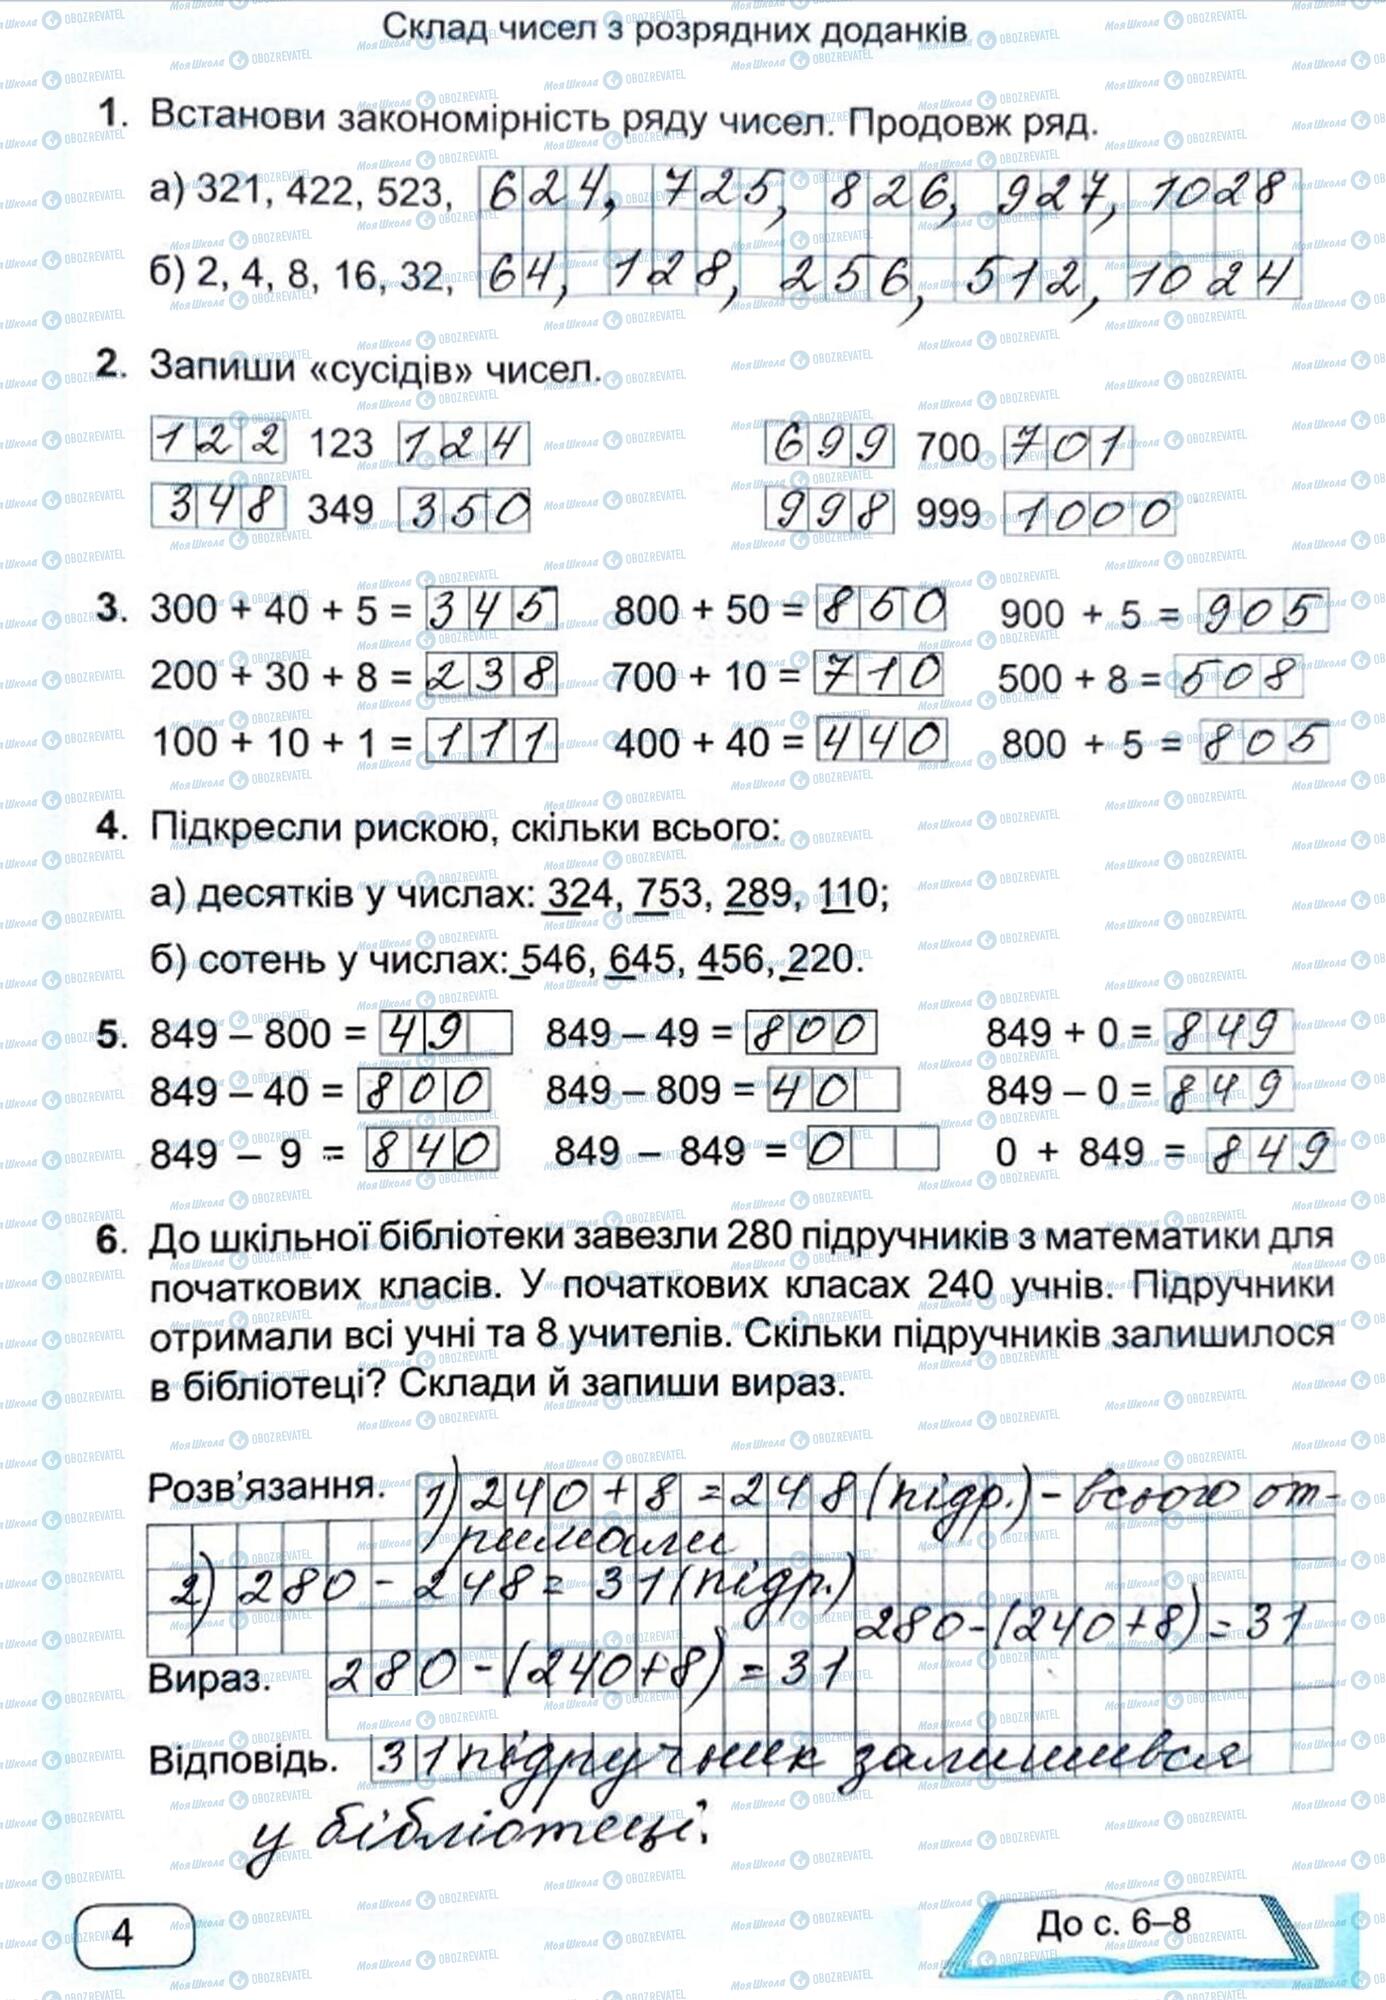 Склад чисел з розрядних доданків
1. Встанови закономірність ряду чисел. Продовж ряд.
а) 321, 422, 523, 624, 725, 826, 927, 1028
б) 2, 4, 8, 16, 32, 64, 128, 256, 512, 1024
2. Запиши «сусідів» чисел.
122 123 124 699 700 701
348 349 350 998 999 1000
3. 300 + 40 + 5 = 345 800 + 50 = 850 900 + 5 = 905
200 + 30 + 8 = 238 700 + 10 = 710 500 + 8 = 508
100 + 10 + 1 = 111 400 + 40 = 440 800 + 5 = 805
4. Підкресли рискою, скільки всього:
а) десятків у числах: 324, 753, 289, 110;
б) сотень у числах: 546, 645, 456, 220.
5. 849 – 800 = 49 849 – 49 = 800 849 + 0 = 849
849 – 40 = 800 849 – 809 = 40 849 – 0 = 849
849 – 9 = 840 849 – 849 = 0 0 + 849 = 849
6. До шкільної бібліотеки завезли 280 підручників з математики для
початкових класів. У початкових класах 240 учнів. Підручники
отримали всі учні та 8 учителів. Скільки підручників залишилося
в бібліотеці? Склади й запиши вираз.
Розв’язання. 1) 240 + 8 = 248 (підр.) - всього от-
римали
2) 280 - 248 = 31 (підр.)
280 - (240 + 8) = 31
Вираз. 280 - (240 + 8) = 31
Відповідь. 31 підручник залишився
у бібліотеці.
4
До с. 6–8
МояШкола OBOZREVATEL